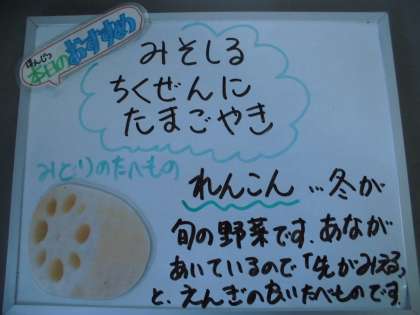 ほんじつ
本日のおすすめ
みそしる
ちくぜんに
たまごやき
みどりのたべもの
れんこん…冬が
旬の野菜です。あなが
あいているので「先がみえる」
と、えんぎの良いたべものです。